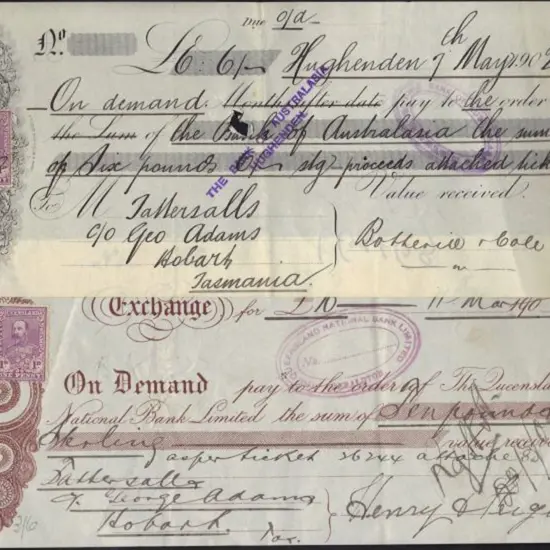 Due o/d
No £6:6/- Hughenden 7th May 190
On demand Month after date pay to the order
the Sum of the Bank of Australasia the sum
of Six pounds 6/- stg proceeds attached tick
Value received.
To M Tattersalls
c/o Geo Adams
Hobart
Tasmania
Rotherill & Cole
THE BANK OF AUSTRALASIA
HUGHENDEN
Exchange for £10 11 Mar 190
QUEENSLAND NATIONAL BANK LIMITED
On Demand pay to the order of The Queensla
National Bank Limited the sum of Ten pounds
Sterling value receive
as per ticket 36244 attached
Tattersalls
c/o George Adams
Hobart
Tas.
Henry
3/6